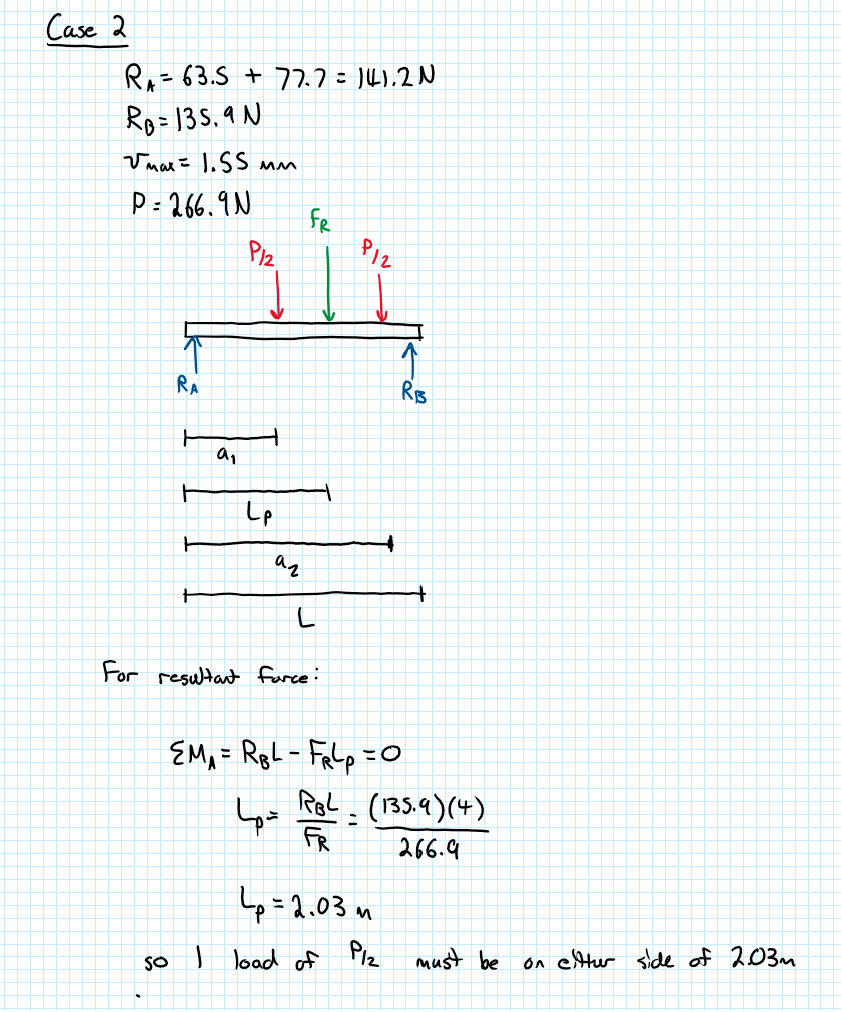 Case 2
R_A = 63.5 + 77.7 = 141.2 N
R_B = 135.9 N
v_max = 1.55 mm
P = 266.9 N
F_R
P/2 P/2
R_A R_B
a_1
L_P
a_2
L
For resultant force:
ΣM_A = R_B L - F_R L_P = 0
L_P = R_B L / F_R = (135.9)(4) / 266.9
L_P = 2.03 m
so 1 load of P/2 must be on either side of 2.03m